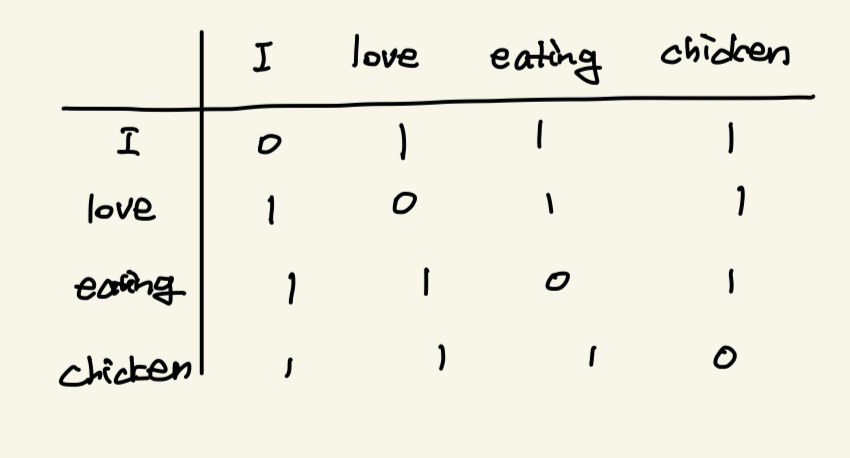 I love eating chicken
I 0 1 1 1
love 1 0 1 1
eating 1 1 0 1
chicken 1 1 1 0